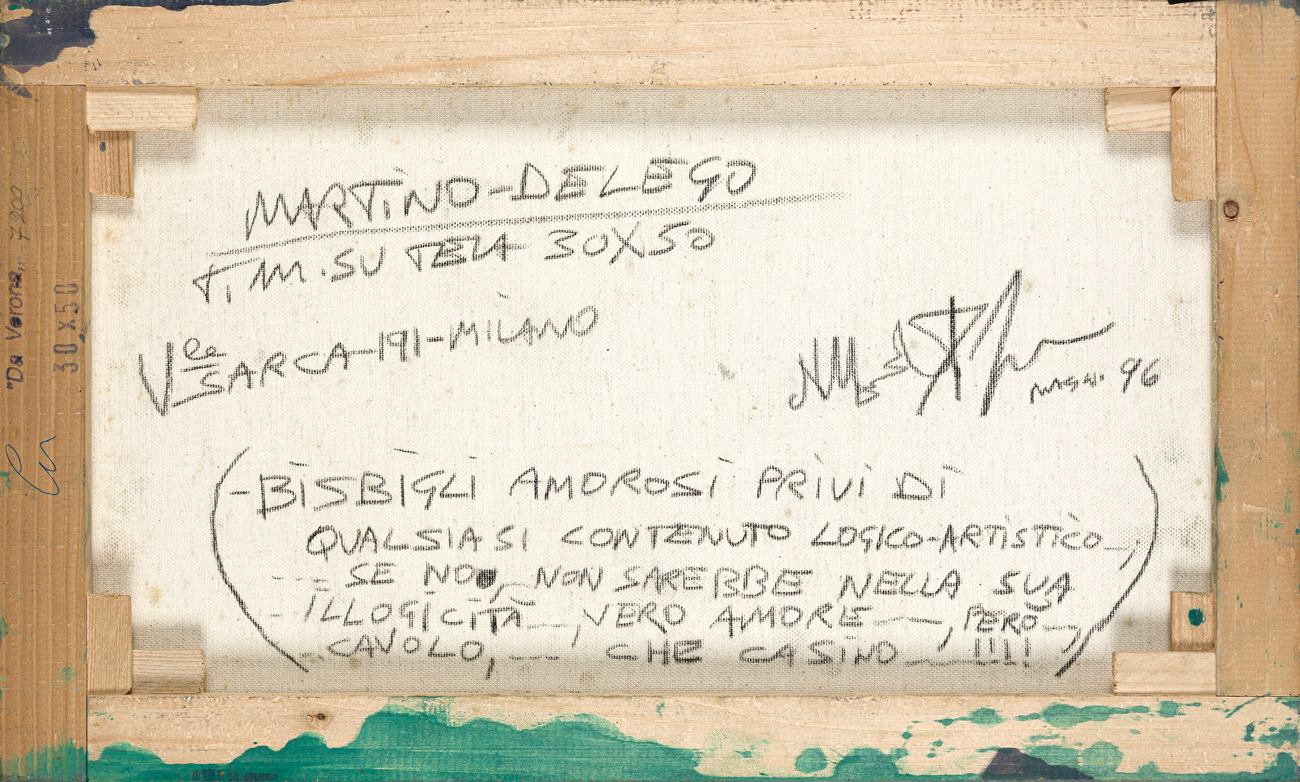 MARTINO-DELEGO
T.M. SU TELA 30X50
Vle SARCA-191-MILANO
96
(-BISBIGLI AMOROSI PRIVI DI
QUALSIASI CONTENUTO LOGICO-ARTISTICO...,
... SE NO, NON SAREBBE NELLA SUA
-ILLOGICITÀ..., VERO AMORE..., PERÒ...,
-CAVOLO, ... CHE CASINO ... !!!!)
"Da Verona,, 7200
30X50